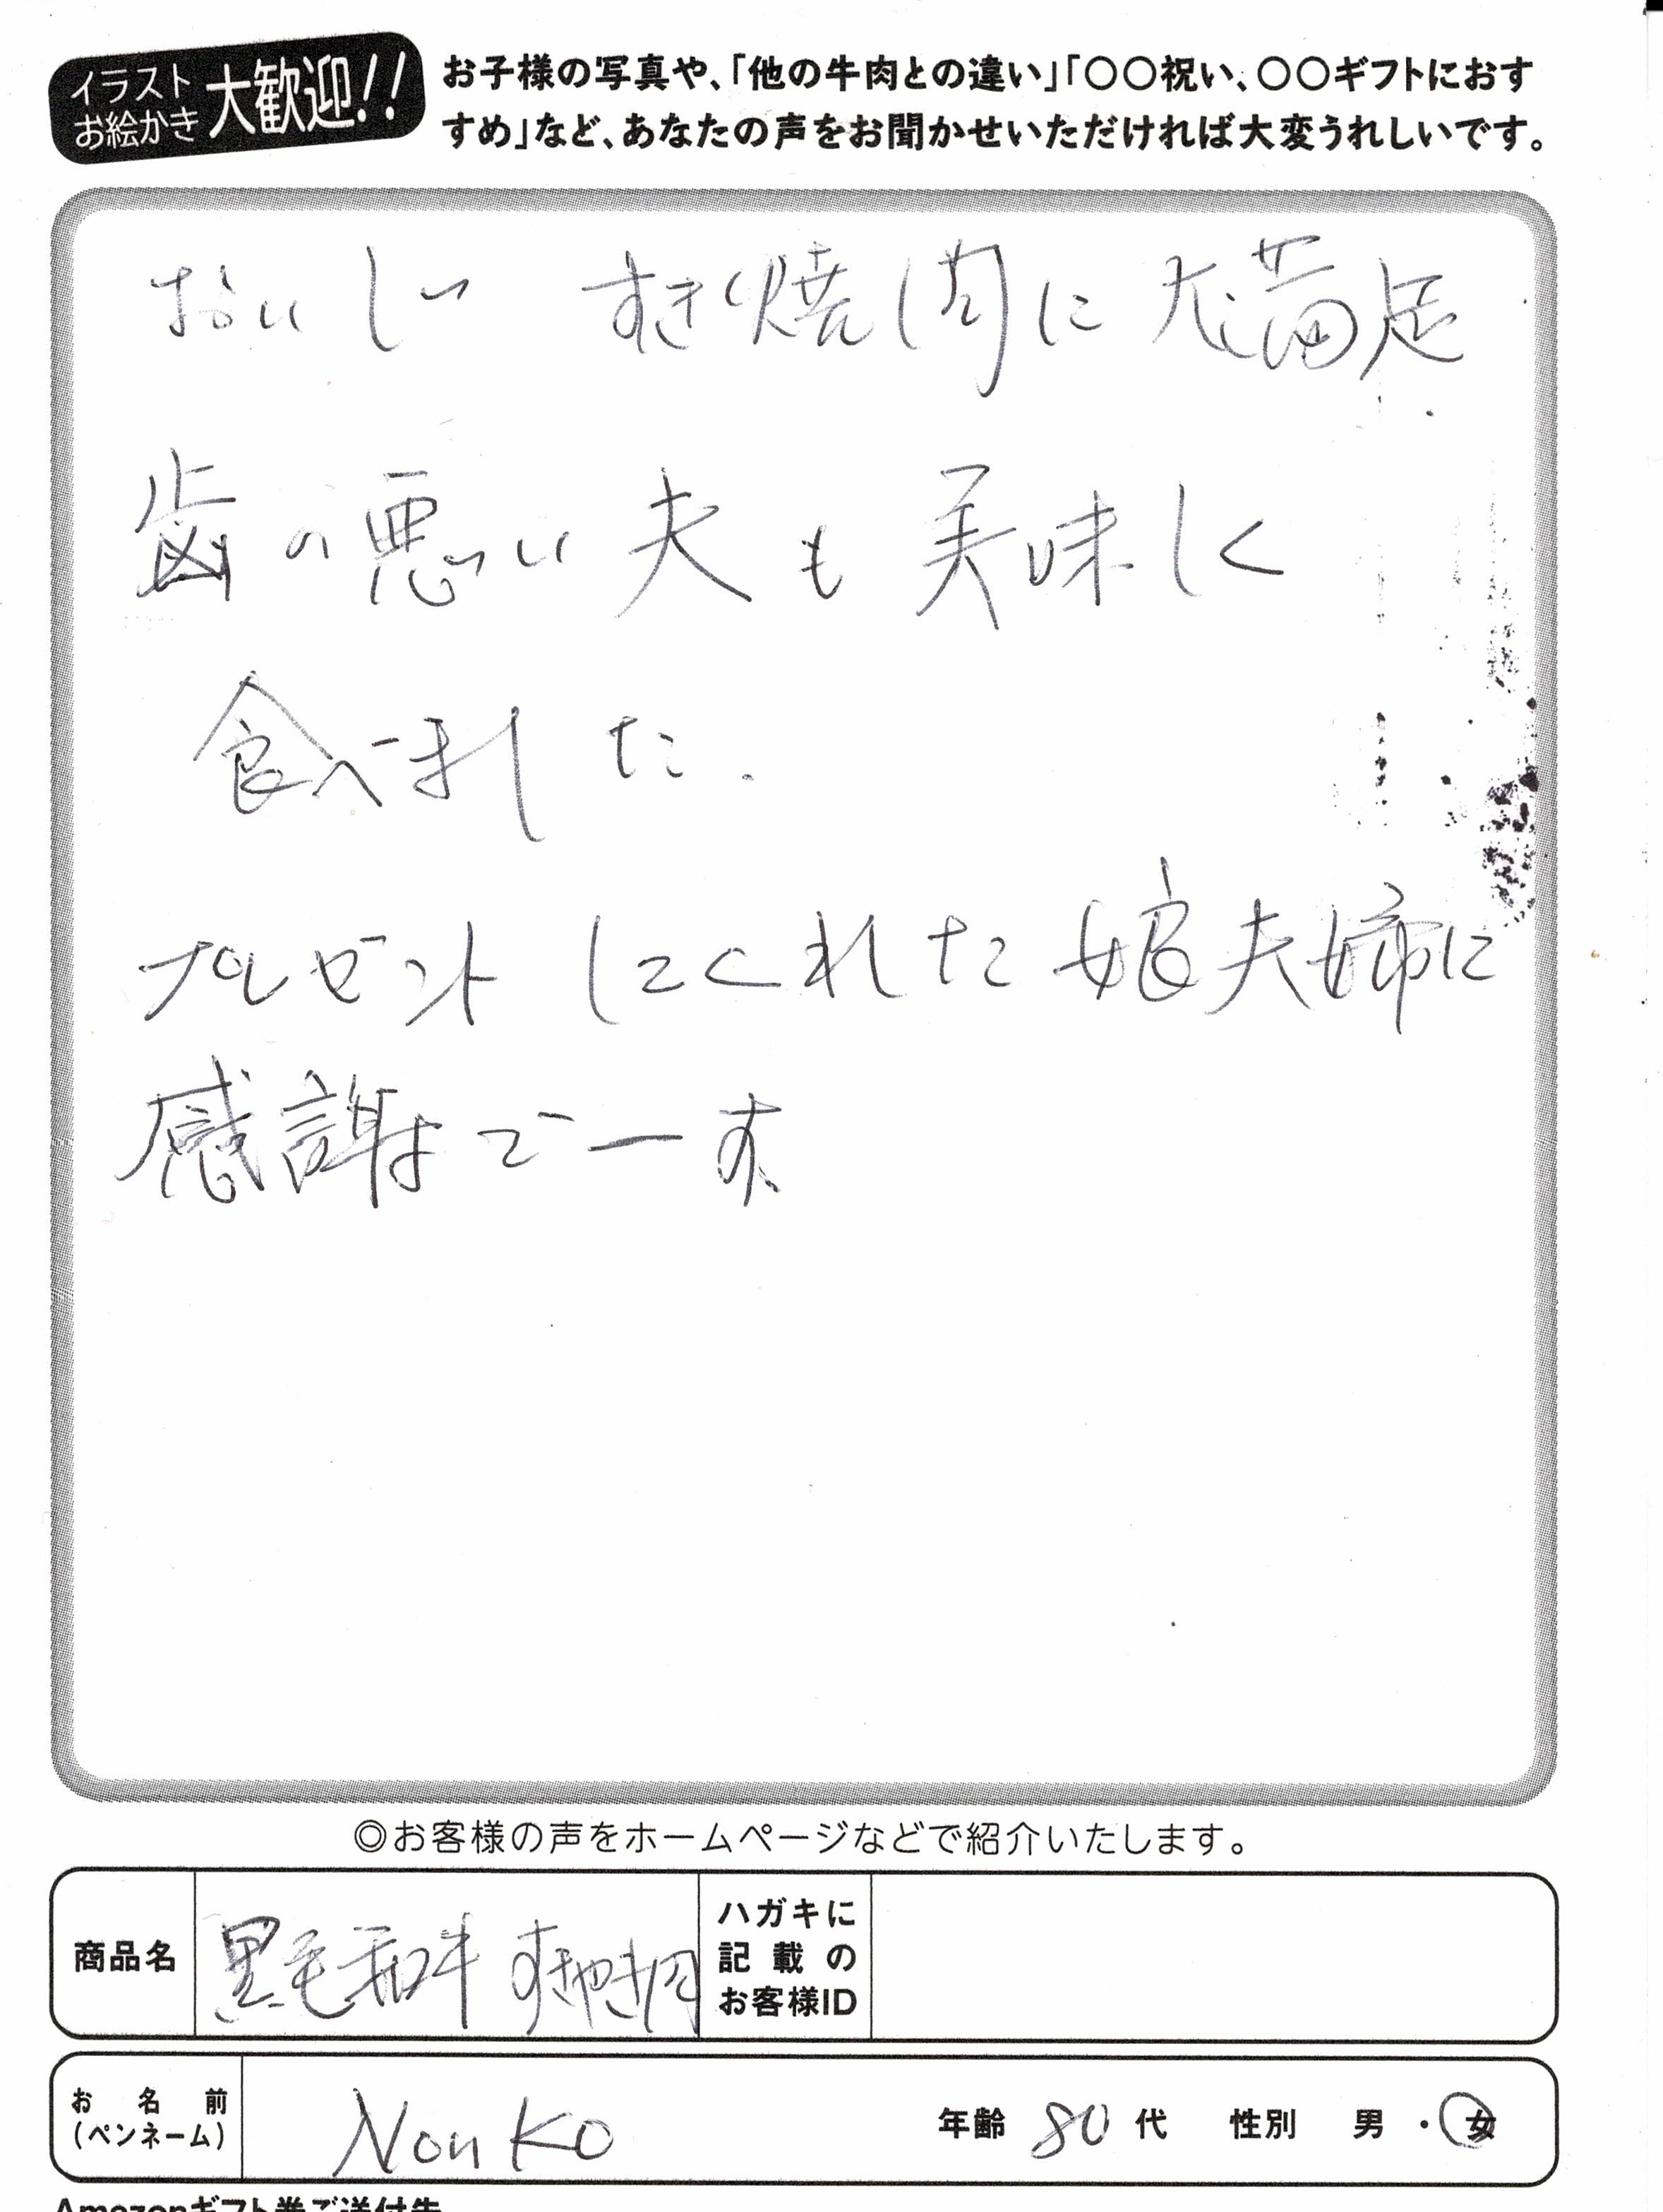 イラスト
お絵かき
大歓迎!!
お子様の写真や、「他の牛肉との違い」「○○祝い、○○ギフトにおす
すめ」など、あなたの声をお聞かせいただければ大変うれしいです。
おいしい すき焼肉に大満足
歯の悪い夫も美味しく
食べました.
プレゼントしてくれた娘夫婦に
感謝で一す
◎お客様の声をホームページなどで紹介いたします。
商品名
黒毛和牛 すきやき肉
ハガキに
記載の
お客様ID
お名前
(ペンネーム)
Non Ko
年齢 80 代 性別 男・女
Amazonギフト券ご送付先